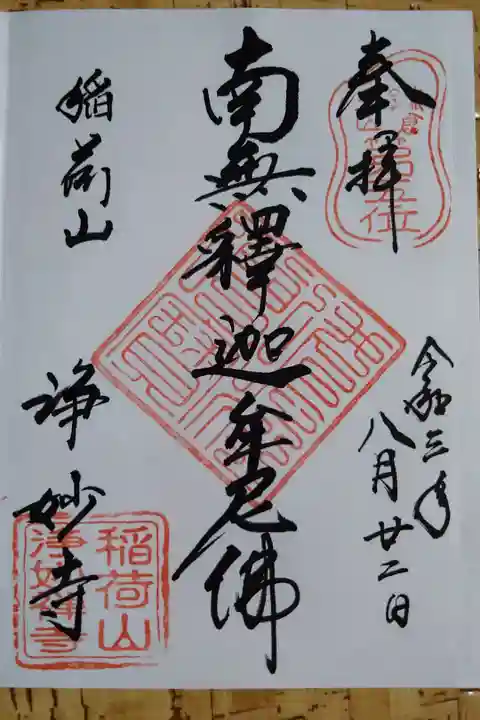 奉拝
令和三年
八月廿二日
南無釋迦牟尼佛
稲荷山
浄妙寺
稲荷山